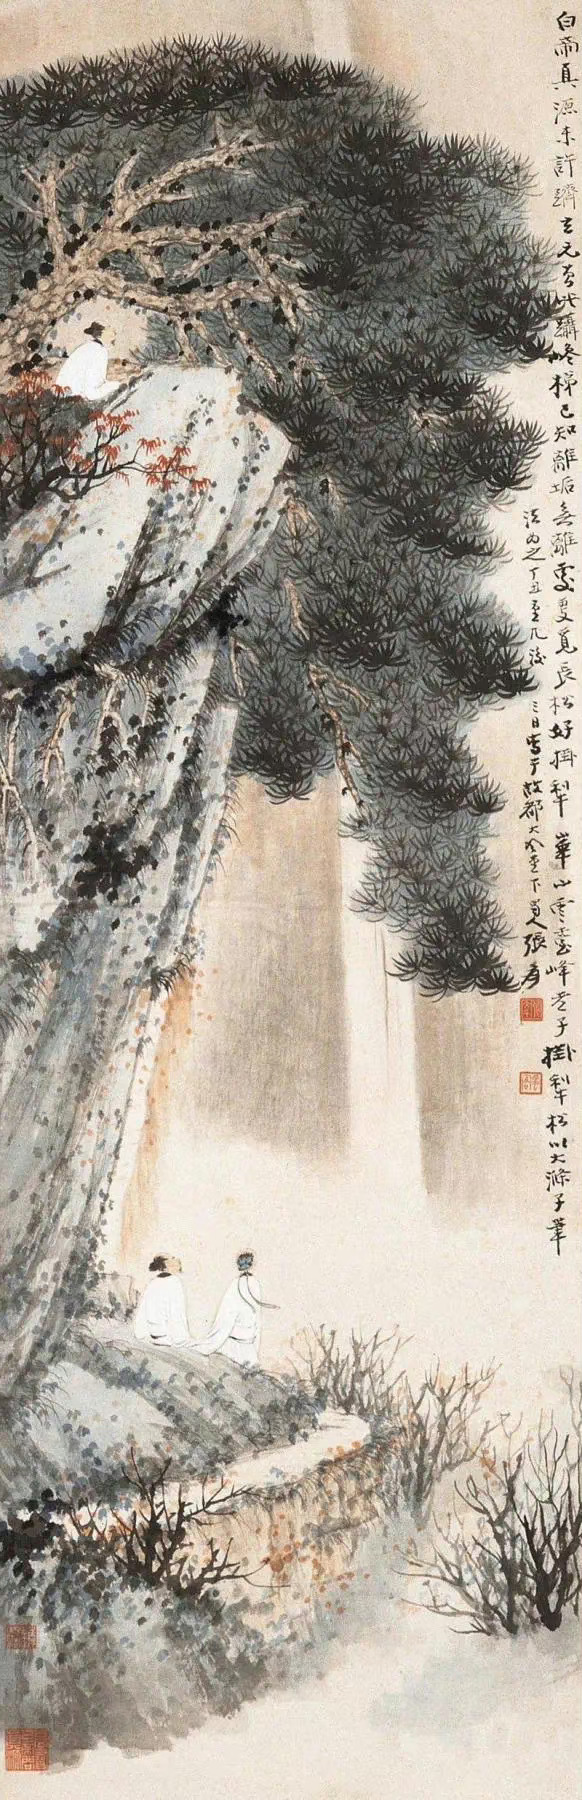 白帝真源未許躋玄元有代躡嶝梯已知離垢無離處更覓長松好掛犁華山雲臺峰老子掛犁松以大滌子筆
法為之丁丑重九後三日寫于故都大風堂下蜀人張爰